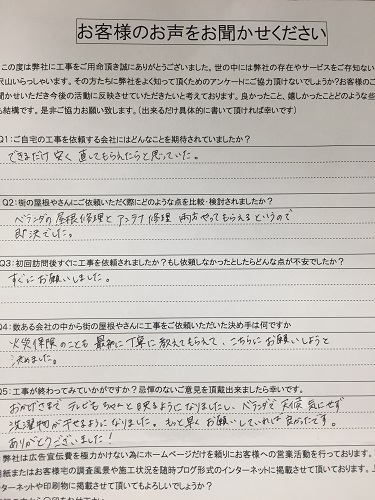 お客様のお声をお聞かせください
この度は弊社に工事をご用命頂き誠にありがとうございました。世の中には弊社の存在やサービスをご存知ない
沢山いらっしゃいます。その方たちに弊社をよく知って頂くためのアンケートにご協力頂けないでしょうか?お客様のご
聞かせいただき今後の活動に反映させていただきたいと考えております。良かったこと、嬉しかったことどのような些
も結構です。是非ご協力お願い致します。(出来るだけ具体的に書いて頂ければ幸いです)
Q1:ご自宅の工事を依頼する会社にはどんなことを期待されていましたか?
できるだけ安く直してもらえたらと思っていた。
Q2:街の屋根やさんにご依頼いただく際にどのような点を比較・検討されましたか?
ベランダの屋根修理とアンテナ修理両方やってもらえるというので
即決でした。
Q3:初回訪問後すぐに工事を依頼されましたか?もし依頼しなかったとしたらどんな点が不安でしたか?
すぐにお願いしました。
Q4:数ある会社の中から街の屋根やさんに工事をご依頼いただいた決め手は何ですか
火災保険のことも最初に丁寧に教えてもらえて、こちらにお願いしようと
決めました。
Q5:工事が終わってみていかがですか?忌憚のないご意見を頂戴出来ましたら幸いです。
おかげさまでテレビもちゃんと映るようになりましたし、ベランダで天候気にせず
洗濯物が干せるようになりました。もっと早くお願いしていれば良かったです。
ありがとうございました!
弊社は広告宣伝費を極力かけない為にホームページだけを頼りにお客様への営業活動を行っております。
用紙またはお客様宅の調査風景や施工状況を随時ブログ形式のインターネットに掲載させて頂いております。
ターネットや印刷物に掲載させて頂いてもよろしいでしょうか?